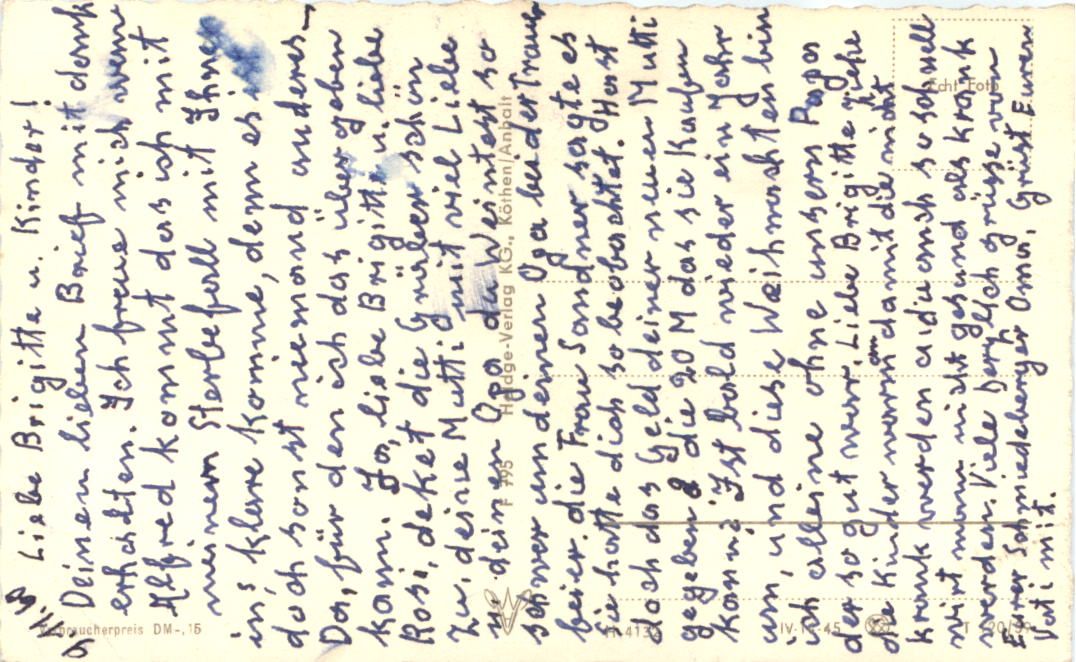 9.11.60
Liebe Brigitte u. Kinder!
Deinen lieben Brief mit dank
erhalten. Ich freue mich wenn
Alfred kommt das ich mit
meinem Sterbefall mit Ihnen
in's klare komme, denn es is
doch sonst niemand anderes
Da, für den ich das über geben
kann. Ja, liebe Brigitte u. liebe
Rosi, deket die Gräber schön
Zu, deine Mutti mit viel Liebe
u. deinen Opa du weintest so
schwer um deinen Opa bei der Trauer
feier. die Frau Sandner sagte es
sie hatte dich so beobachtet. Hast
doch das Geld deiner neuen Mutti
gegeben die 20 M das sie kaufen
kann? Ist bald wieder ein Jahr
um, und diese Weihnachten bin
ich alleine ohne unsern Papa
der so gut war. Liebe Brigitte ziehe
die Kinder warm an damit die nicht
krank werden u die auch so schnell
wirst nun nicht gesund als krank
werden. Viele herzlich grüsse von
Eurer Schmiedeberger Oma, Grüst Euren
Vati mit.
Echt Foto
Heldge-Verlag KG., Köthen/Anhalt
F 395
Verbraucherpreis DM -,15
IV-14-45